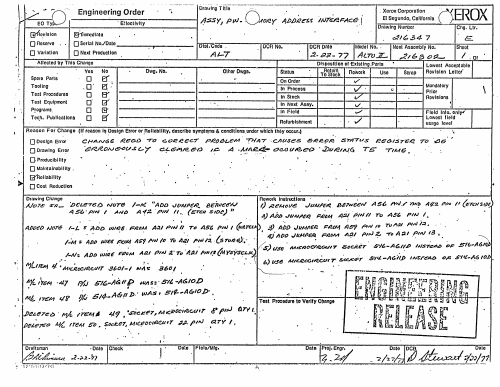 Engineering Order
EO Type
Effectivity
Revision
Immediate
Reserve
Serial No./Date
Variation
Next Production
Drawing Title
ASSY, PW. ADDRESS INTERFACE
Xerox Corporation
El Segundo, California
XEROX
Dist. Code
ALT
DCR No.
DCR Date
2-22-77
Model No.
ALTO II
Drawing Number
216347
Chg. Ltr.
E
Next Assembly No.
216302
Sheet
1 of
Affected By This Change
Yes No
Dwg. No.
Other Dwgs.
Spare Parts
Tooling
Test Procedures
Test Equipment
Programs
Tech. Publications
Disposition of Existing Parts
Status
Return To Stock
Rework
Use
Scrap
On Order
In Process
In Stock
In Next Assy.
In Field
Refurbishment
Lowest Acceptable Revision Letter
Mandatory Prior Revisions
Field Info. only
Lowest field usage level
Reason For Change (If reason is Design Error or Reliability, describe symptoms & conditions under which they occur.)
Design Error
Drawing Error
Producibility
Maintainability
Reliability
Cost Reduction
CHANGE REQD TO CORRECT PROBLEM THAT CAUSES ERROR STATUS REGISTER TO BE
ERRONEOUSLY CLEARED IF A OCCURED DURING T5 TIME.
Drawing Change
DELETED NOTE "ADD JUMPER BETWEEN
A56 PIN 1 AND A42 PIN 11. (ETCH SIDE)"
ADDED NOTE 1-L = ADD WIRE FROM A21 PIN 11 TO A56 PIN 1
1-M = ADD WIRE FROM A59 PIN 10 TO A21 PIN 12 (STORE).
1-N = ADD WIRE FROM A21 PIN 2 TO A21 PIN 13
M/L ITEM 4 MICROCIRCUIT 3601-1 WAS 3601
M/L ITEM 47 P/N 516-AG11D WAS 516-AG10D
M/L ITEM 48 P/N 516-AG11D WAS 516-AG10D.
DELETED M/L ITEM 49, SOCKET, MICROCIRCUIT 8 PIN QTY 1.
DELETED M/L ITEM 50, SOCKET, MICROCIRCUIT 22 PIN QTY 1.
Rework Instructions
1) REMOVE JUMPER BETWEEN A56 PIN 1 AND A42 PIN 11 (ETCH SIDE)
2) ADD JUMPER FROM A21 PIN 11 TO A56 PIN 1.
3) ADD JUMPER FROM A59 PIN 10 TO A21 PIN 12.
4) ADD JUMPER FROM A21 PIN 2 TO A21 PIN 13.
5) USE MICROCIRCUIT SOCKET 516-AG11D INSTEAD OF 516-AG10D
6) USE MICROCIRCUIT SOCKET 516-AG11D INSTEAD OF 516-AG10D.
ENGINEERING
RELEASE
Test Procedure to Verify Change
Draftsman
2-22-77
Check
Date
Pubs/Mfg.
Date
Proj. Engr.
Date
2/22/77
DCR
Date
D Stewart 2/22/77